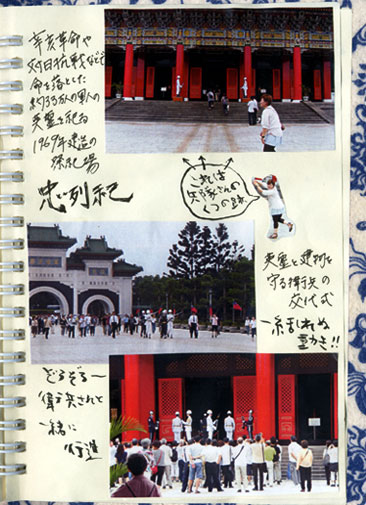 辛亥革命や
対日抗戦などで
命を落とした
約33万人の軍人の
英霊を祀る
1969年建造の
祭祀場
忠烈祀
これは
兵隊さんの
くつの跡
英霊と建物を
守る衛兵の
交代式
一糸乱れぬ
動き!!
ぞろぞろ〜
衛兵されと
一緒に
行進